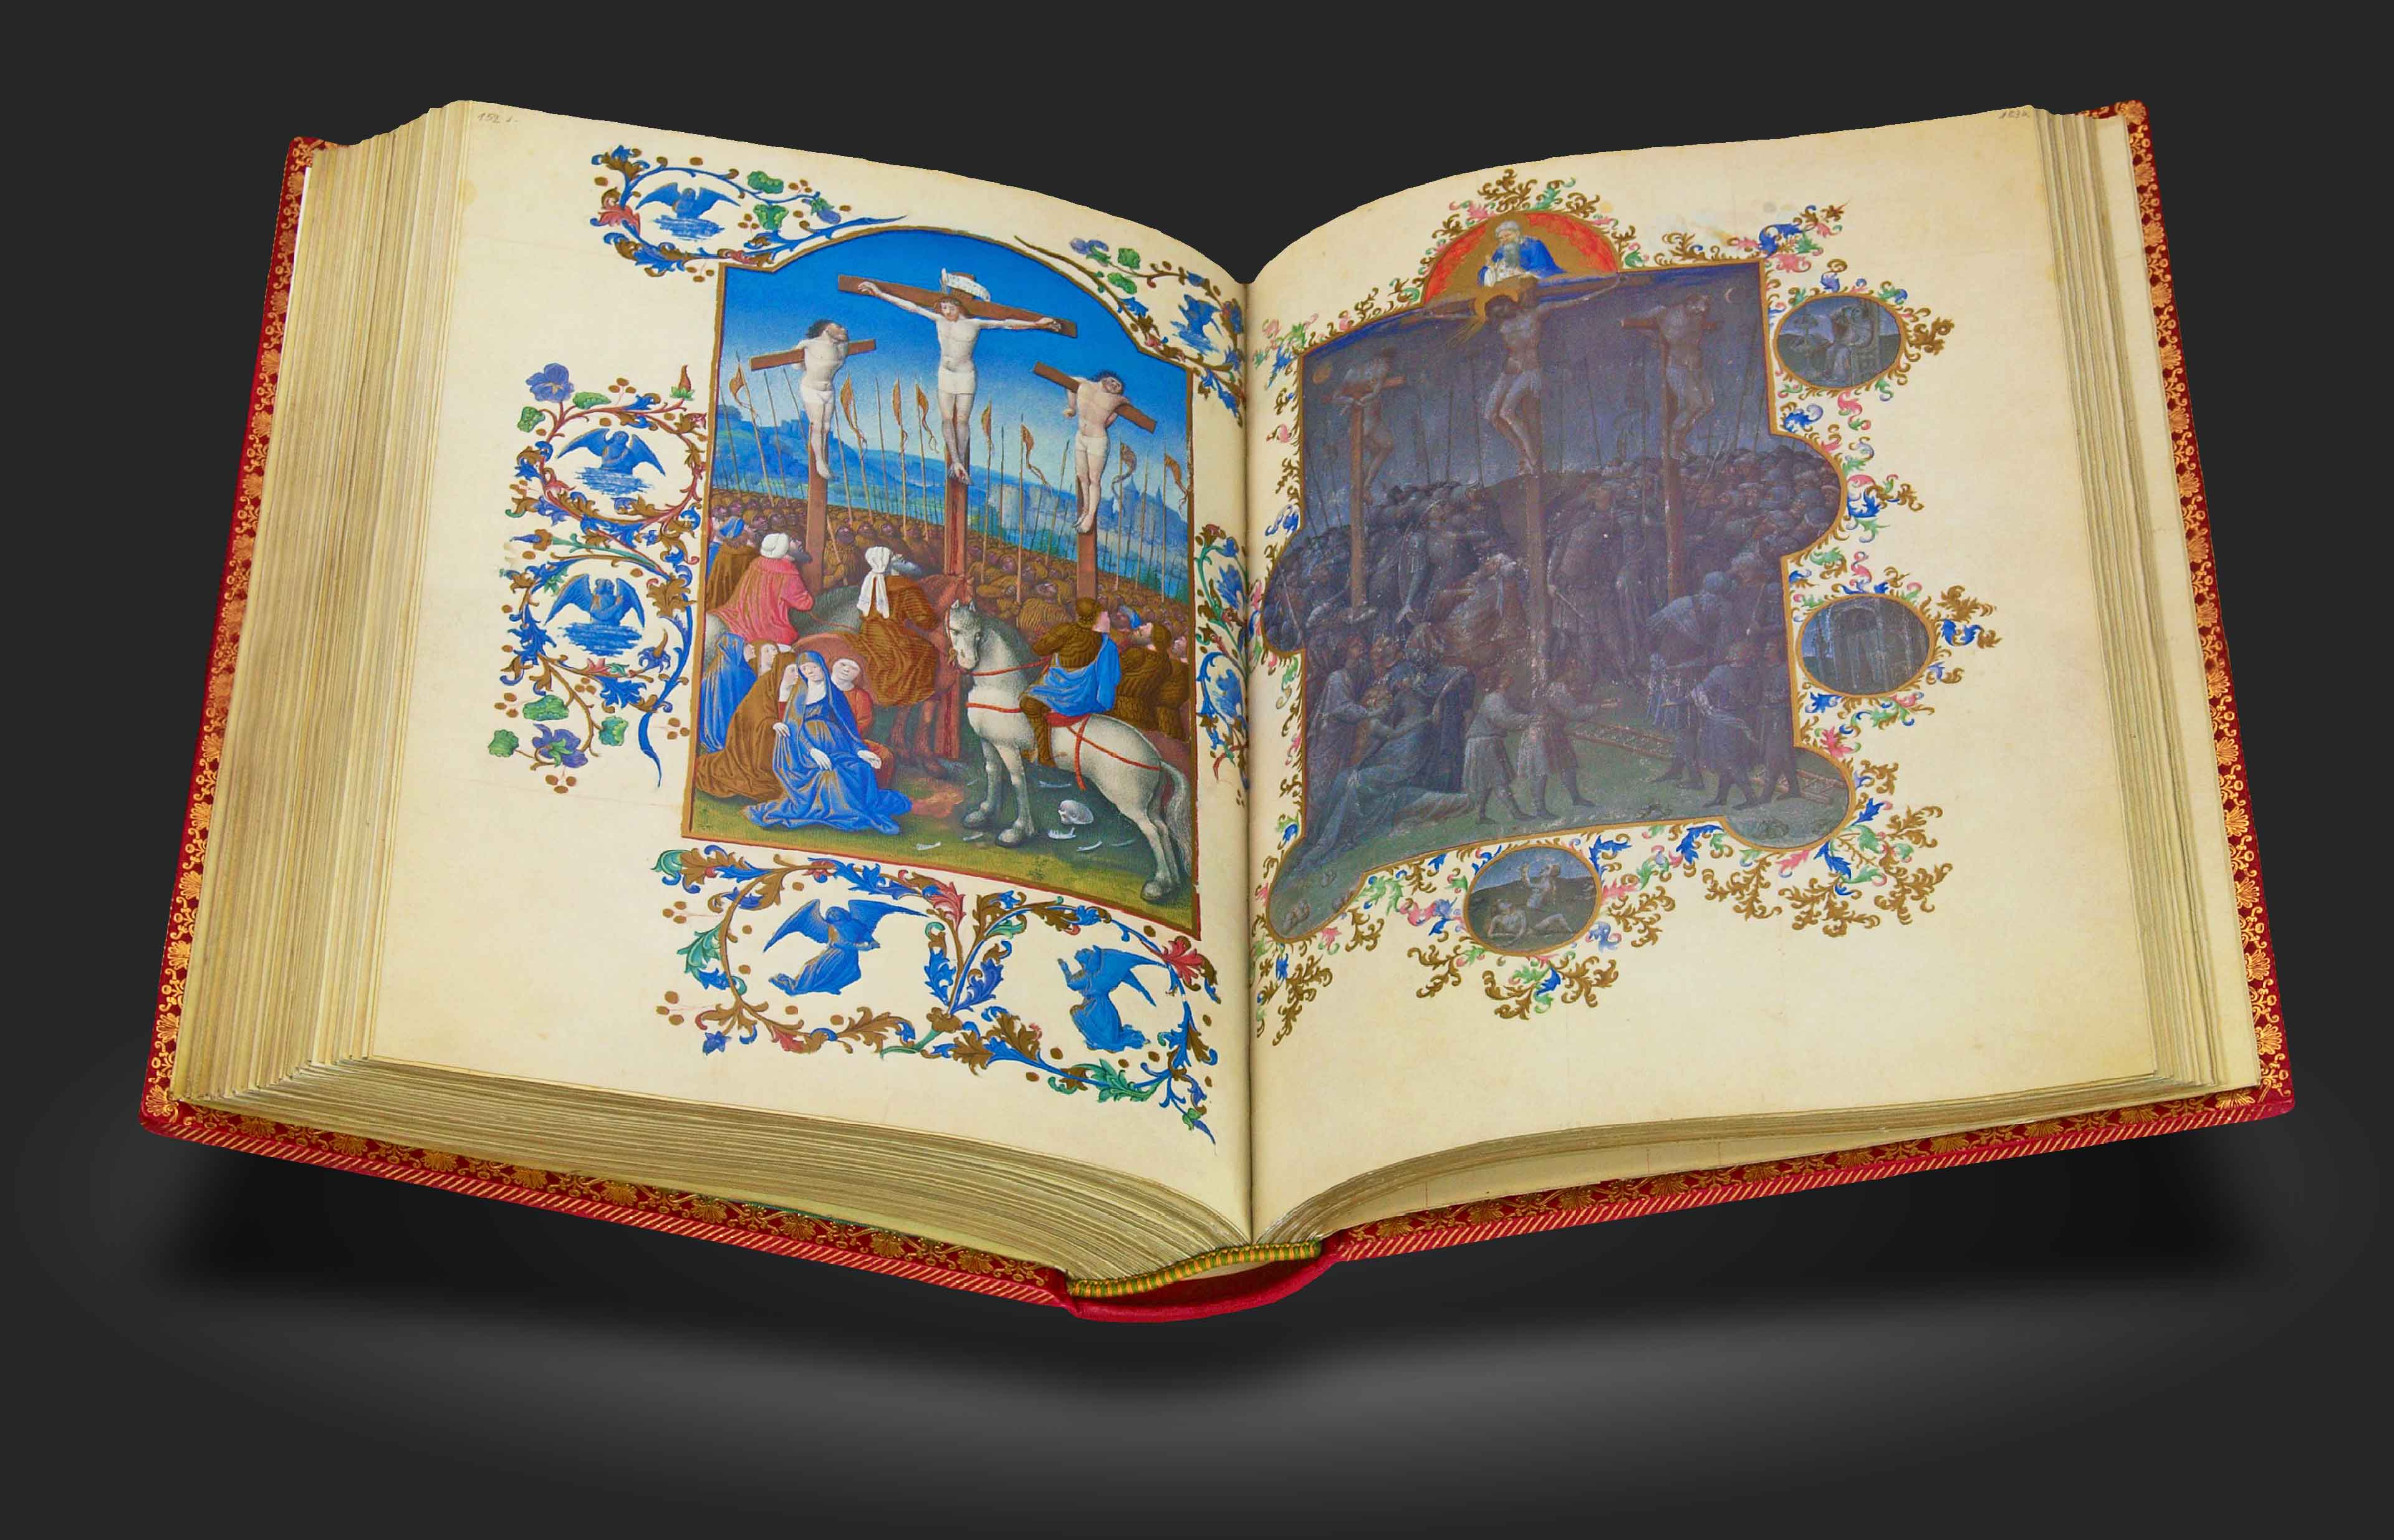 152 v.
153 r.